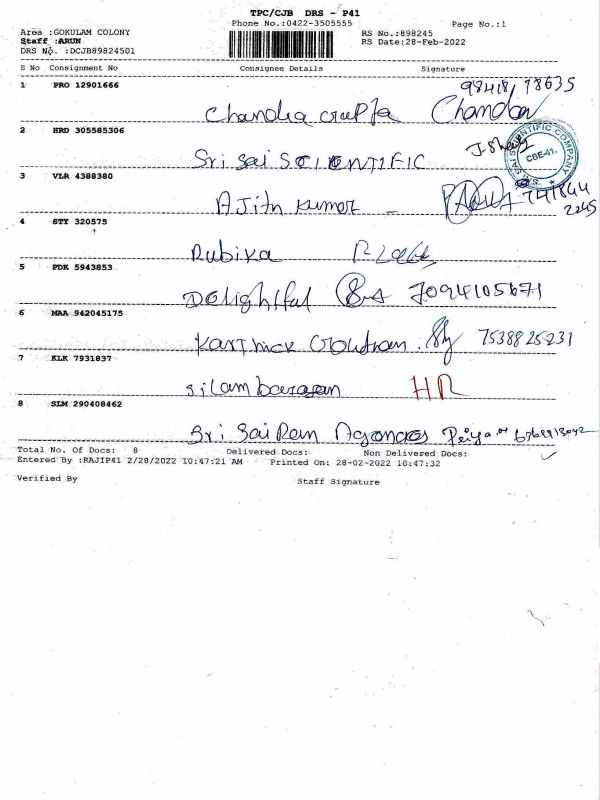 TPC/CJB DRS - P41
Phone No.:0422-3505555
Page No.:1
Area :GOKULAM COLONY
RS No.:898245
Staff :ARUN
RS Date:28-Feb-2022
DRS No. :DCJB89824501
S No Consignment No Consignee Details Signature
1 PRO 12901666
Chandra Gupta Chandra
2 HRD 305585306
Sri Sai SCIENTIFIC
SRI SAI SCIENTIFIC COMPANY
CBE-41.
3 VLR 4388380
Ajith Kumar -
4 STY 320575
Rubika
5 PDK 5943853
Delightful
6 MAA 942045175
Karthick Goutham. 7538825231
7 KLK 7931837
Silambarasan HR
8 SLM 290408462
Sri Sai Ram Agencies Priya
Total No. Of Docs: 8 Delivered Docs: Non Delivered Docs:
Entered By :RAJIP41 2/28/2022 10:47:21 AM Printed On: 28-02-2022 10:47:32
Verified By Staff Signature